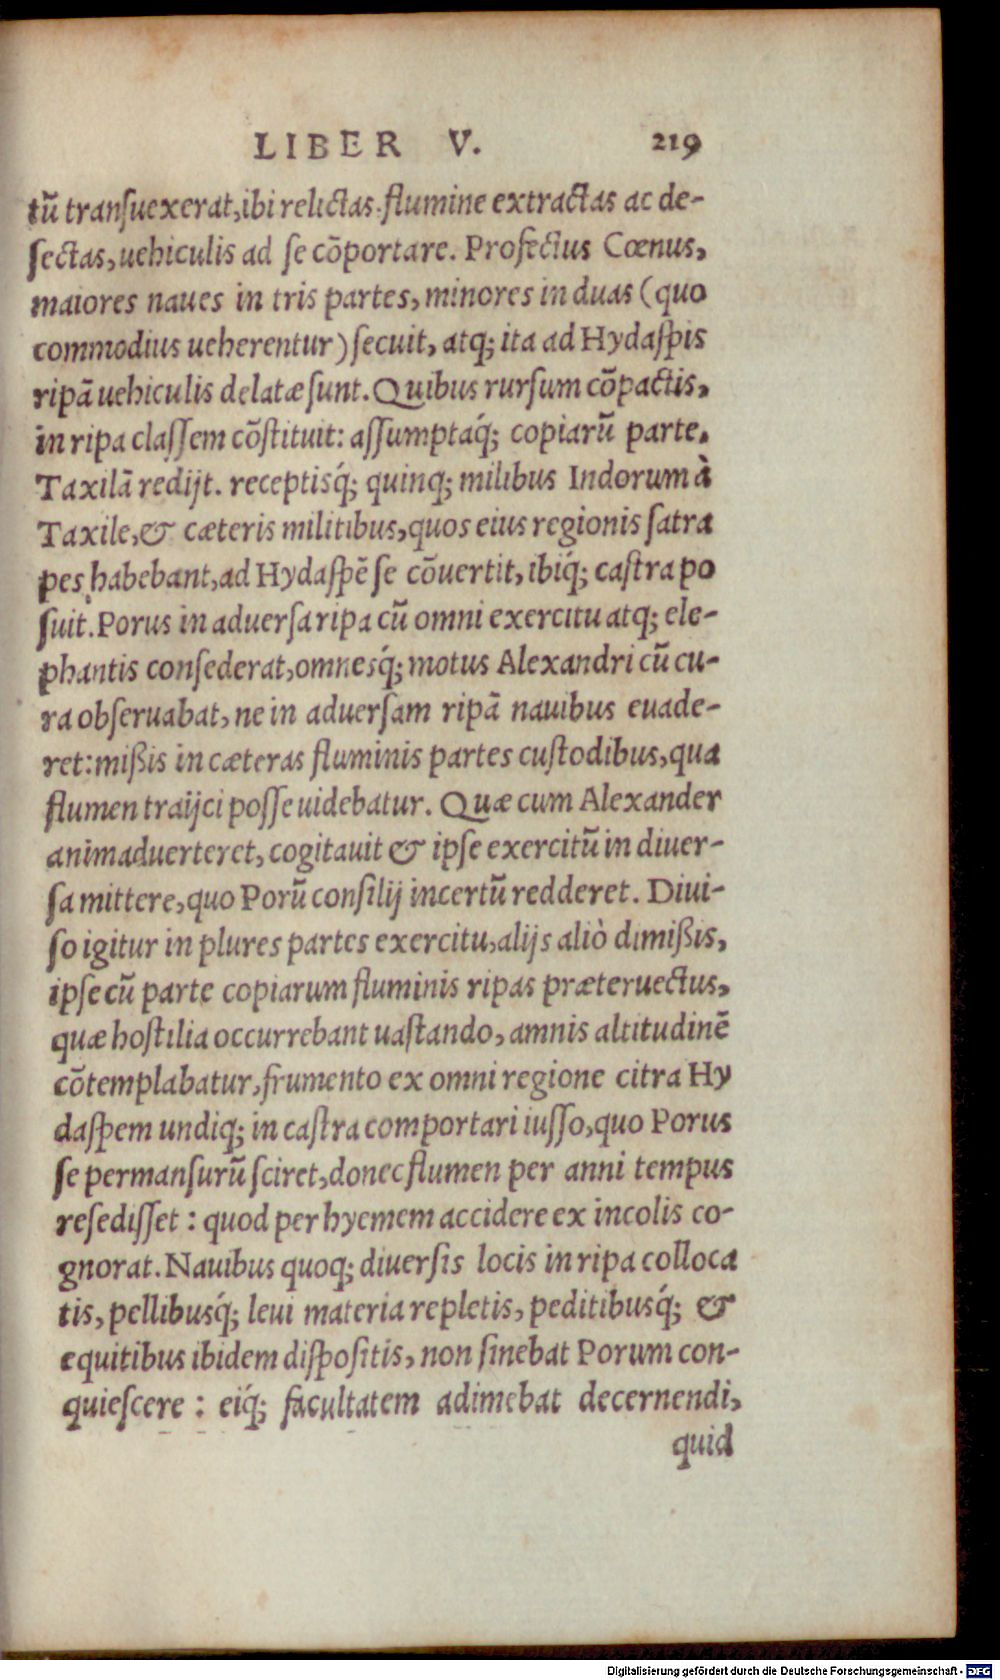 LIBER V. 219
tũ transuexerat, ibi relictas flumine extractas ac de-
sectas, uehiculis ad se cõportare. Profectus Cœnus,
maiores naues in tris partes, minores in duas (quo
commodius ueherentur) secuit, atq; ita ad Hydaspis
ripã uehiculis delatæ sunt. Quibus rursum cõpactis,
in ripa classem cõstituit: assumptaq́; copiarũ parte,
Taxilã redijt. receptisq́; quinq; milibus Indorum à
Taxile, & cæteris militibus, quos eius regionis satra
pes habebant, ad Hydaspẽ se cõuertit, ibiq́; castra po
suit. Porus in aduersa ripa cũ omni exercitu atq; ele-
phantis consederat, omnesq́; motus Alexandri cũ cu-
ra obseruabat, ne in aduersam ripã nauibus euade-
ret: mißis in cæteras fluminis partes custodibus, qua
flumen traijci posse uidebatur. Quæ cum Alexander
animaduerteret, cogitauit & ipse exercitũ in diuer-
sa mittere, quo Porũ consilij incertũ redderet. Diui-
so igitur in plures partes exercitu, alijs aliò dimißis,
ipse cũ parte copiarum fluminis ripas præteruectus,
quæ hostilia occurrebant uastando, amnis altitudinẽ
cõtemplabatur, frumento ex omni regione citra Hy
daspem undiq; in castra comportari iusso, quo Porus
se permansurũ sciret, donec flumen per anni tempus
resedisset: quod per hyemem accidere ex incolis co-
gnorat. Nauibus quoq; diuersis locis in ripa colloca
tis, pellibusq́; leui materia repletis, peditibusq́; &
equitibus ibidem dispositis, non sinebat Porum con-
quiescere: eiq́; facultatem adimebat decernendi,
quid
Digitalisierung gefördert durch die Deutsche Forschungsgemeinschaft - DFG